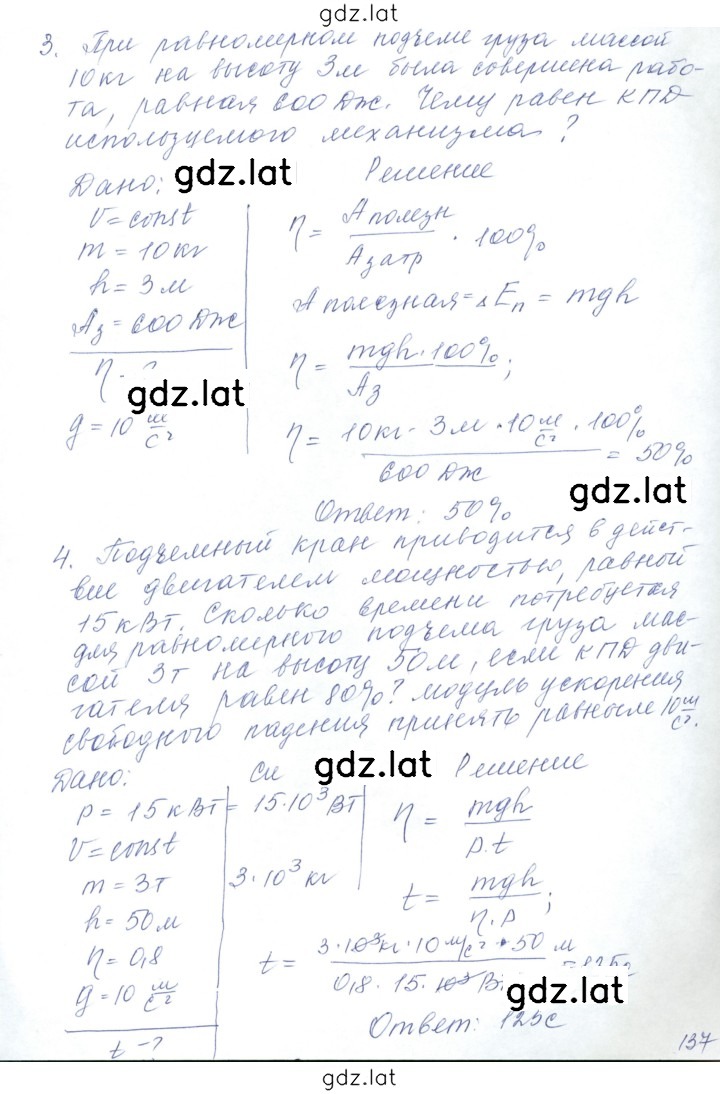 gdz.lat
3. При равномерном подъеме груза массой
10 кг на высоту 3 м была совершена рабо-
та, равная 600 Дж. Чему равен КПД
используемого механизма?
gdz.lat
Дано: Решение
V = const
m = 10 кг
h = 3 м
Aз = 600 Дж
η - ?
g = 10 м/с²
η = A полезн / A затр · 100%
A полезная = ΔEп = mgh
η = mgh · 100% / Aз ;
gdz.lat
η = 10 кг · 3 м · 10 м/с² · 100% / 600 Дж = 50%
gdz.lat
Ответ: 50%
4. Подъемный кран приводится в дейст-
вие двигателем мощностью, равной
15 кВт. Сколько времени потребуется
для равномерного подъема груза мас-
сой 3 т на высоту 50 м, если КПД дви-
гателя равен 80%? модуль ускорения
свободного падения принять равным 10 м/с².
gdz.lat
Дано: Си Решение
P = 15 кВт = 15·10³ Вт
V = const
m = 3 т 3·10³ кг
h = 50 м
η = 0,8
g = 10 м/с²
t - ?
η = mgh / P·t
t = mgh / η·P ;
t = 3·10³ кг · 10 м/с² · 50 м / 0,8 · 15 · 10³ Вт = 125с
gdz.lat
Ответ: 125с
137
gdz.lat